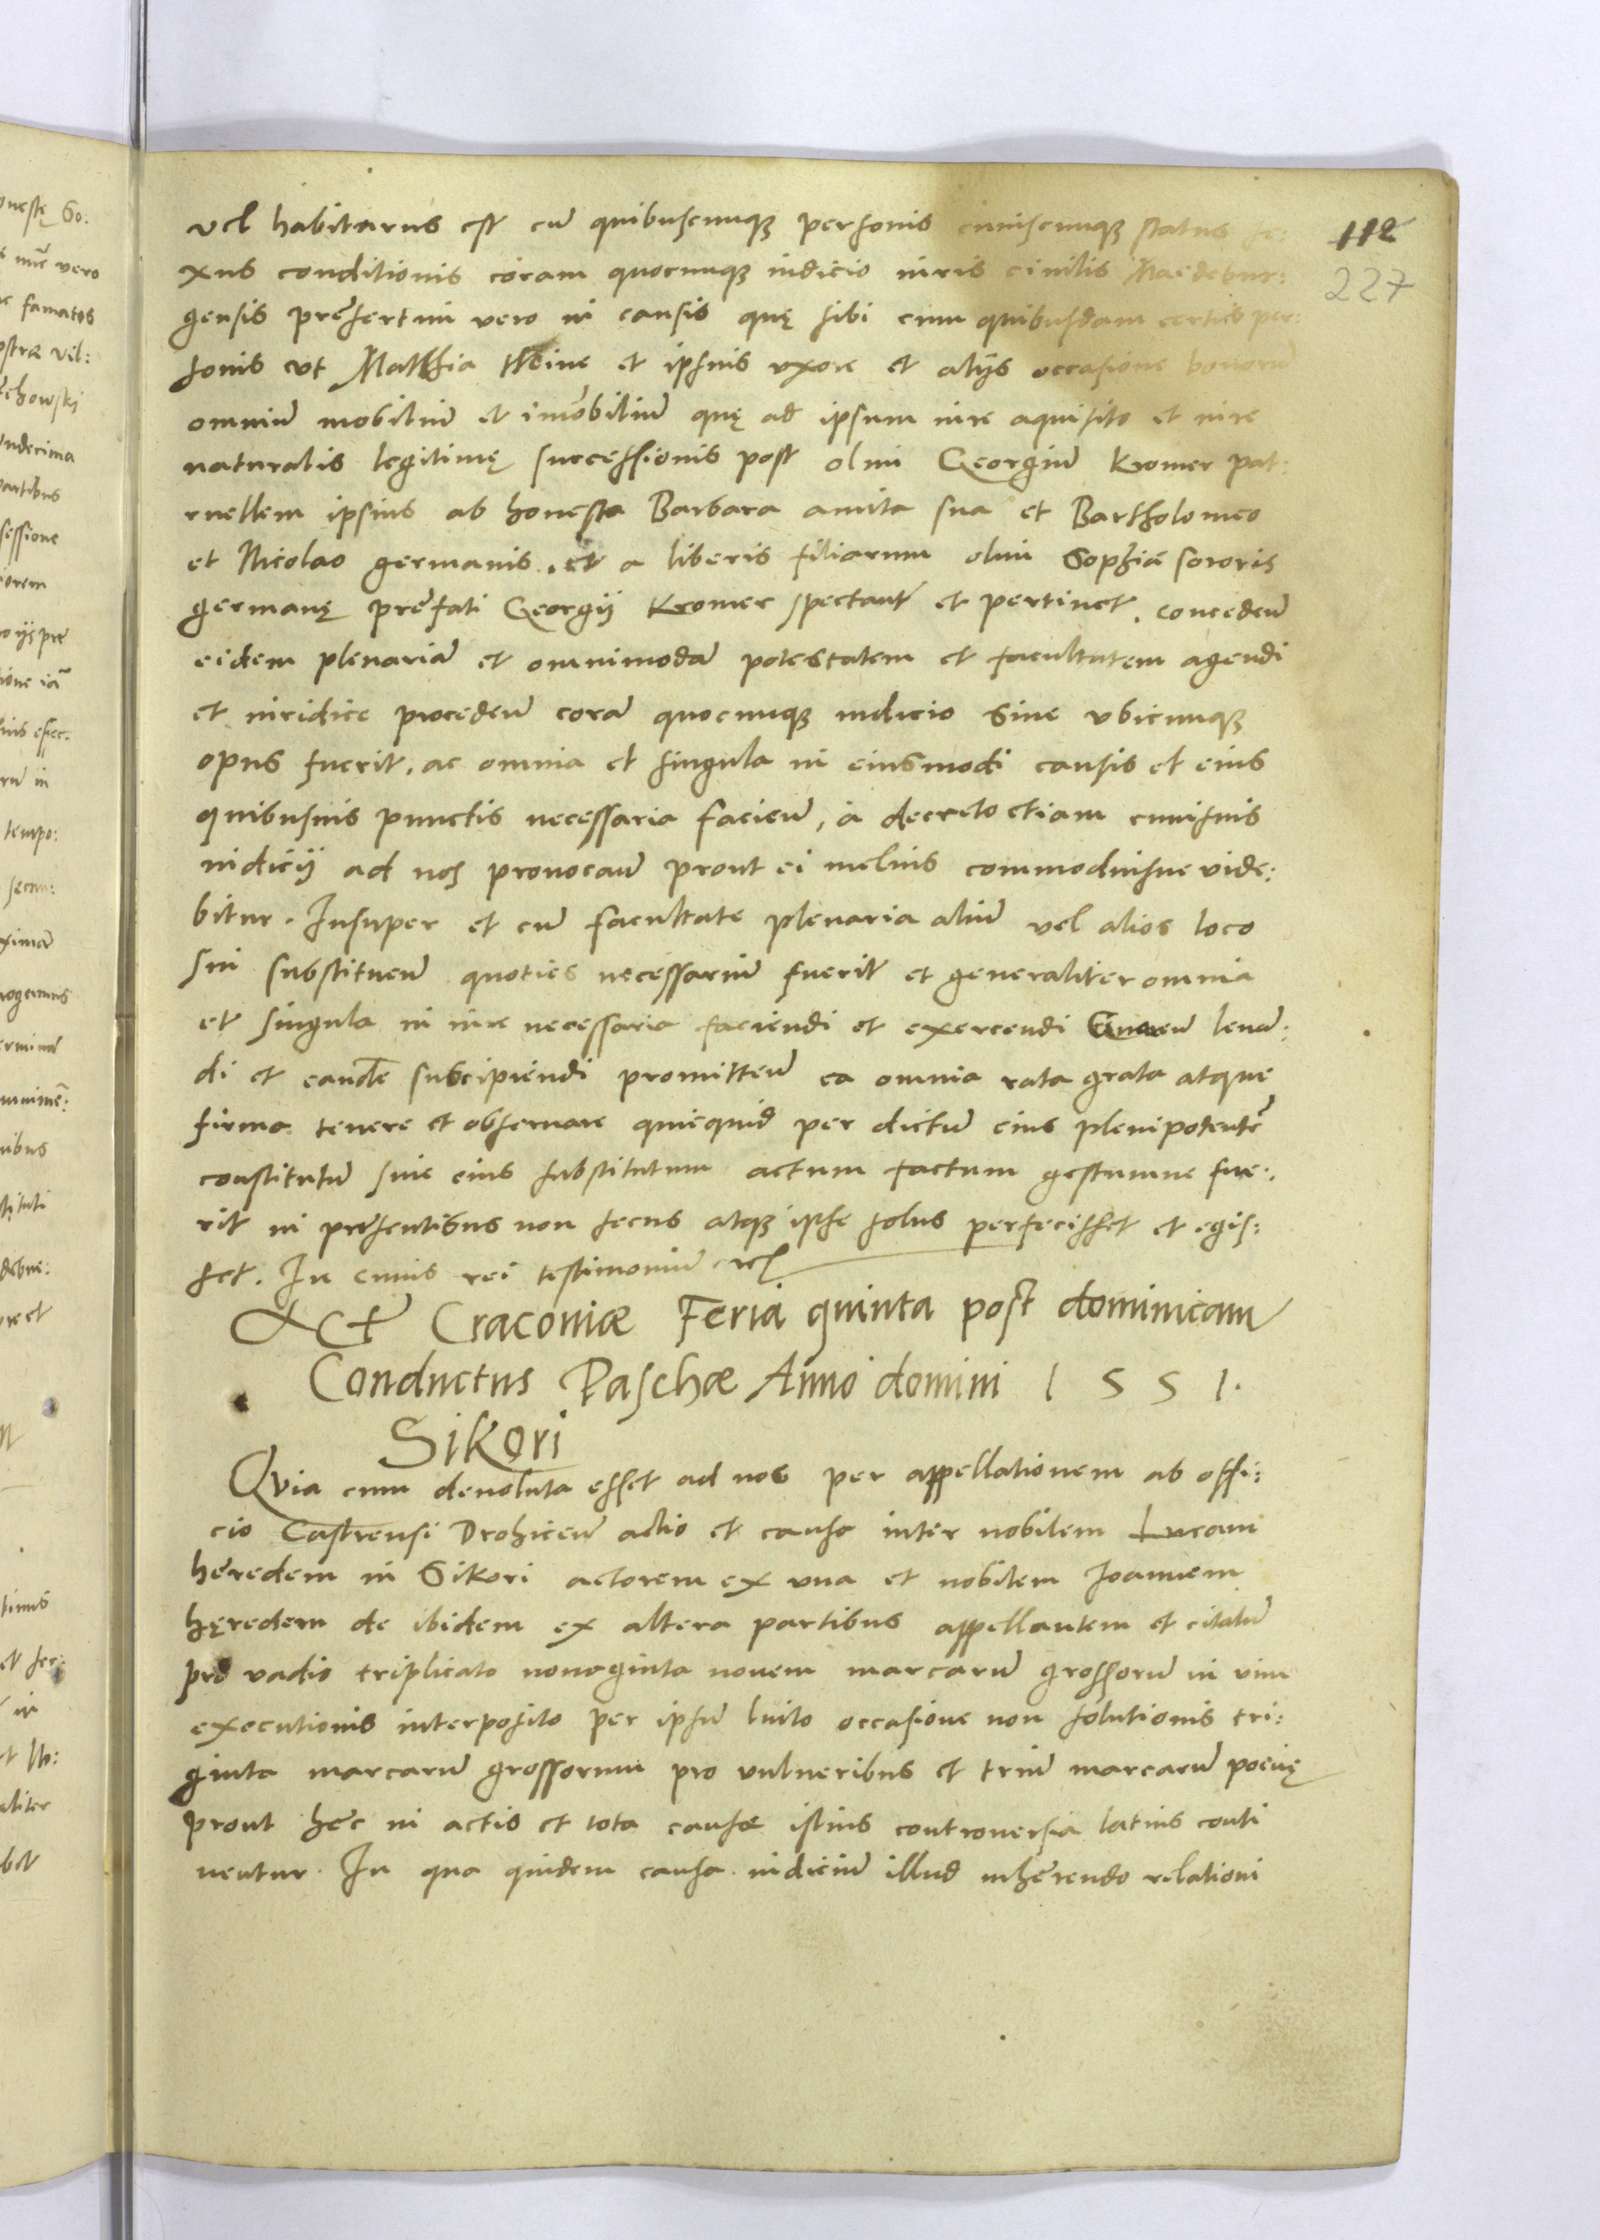 vel habiturus est cu͂ quibuscunqꝫ personis cuiuscunqꝫ status se:
xus conditionis coram quocunqꝫ iudicio iuris ciuilis Maidebur:
gensis preħsertim vero in causis quę sibi cum quibusdam certis per:
sonis vt Matthia et ipsius vxore et alijs occasione bonoru͂
omniu͂ mobiliu͂ et im̃obiliu͂ quę ad ipsum iure aquisito et iure
naturalis legitimę successionis post olim Georgiu͂ Kromer pat:
ruellem ipsius ab honesta Barbara amita sua et Bartholomeo
et Nicolao germanis. et a liberis filiarum olim Sophia͂ sororis
germanę pre͂fati Georgij Kromer spectant et pertinet. concedeu͂
eidem plenaria͂ et omnimoda͂ potestatem et facultatem agendi
et iuridice procedeu͂ cora͂ quocunqꝫ iudicio siue vbicunqꝫ
opus fuerit. ac omnia et singula in eiusmodi causis et eius
quibusuis punctis necessaria facieu͂, a decreto etiam cuiusuis
iudicij ad nos prouocau͂ prout ei melius commodiusue vide:
bitur. Insuper et cu͂ facultate plenaria aliu͂ vel alios loco
sui substitueu͂ quoties necessariu͂ fuerit et generaliter omnia
et singula in iure necessaria faciendi et exercendi leuan:
di et eande͂ suscipiendi promitteu͂ ea omnia rata grata atque
firma tenere et obseruare quicquid per dictu͂ eius plenipotente͂
constitutu͂ siue eius substitutum actum factum gestumue fue:
rit in pre͂sentibus non secus atqꝫ ipse solus perfecisset et egis:
set. In cuius rei testimoniu͂ etc̃
Act͂ Cracouiæ Feria quinta post dominicam
Conductus Paschæ Anno domini 1 5 5 1.
Sikori
Qvia cum deuoluta esset ad nos per appellationem ab offi:
cio Castrensi Drohiceu͂ actio et causa inter nobilem Lucam
he͂redem in Sikori actorem ex vna et nobilem Joannem
hęredem de ibidem ex altera partibus appellantem et citatu͂
pro vadio triplicato nonaginta nouem marcaru͂ grossoru͂ in vim
executionis interposito per ipsu͂ luito occasione non solutionis tri:
ginta marcaru͂ grossorum pro vulneribus et triu͂ marcaru͂ poenę
prout he͂c in actis et tota causæ istius controuersia latius conti
nentur. In qua quidem causa iudiciu͂ illud inhe͂rendo relationi
112
227